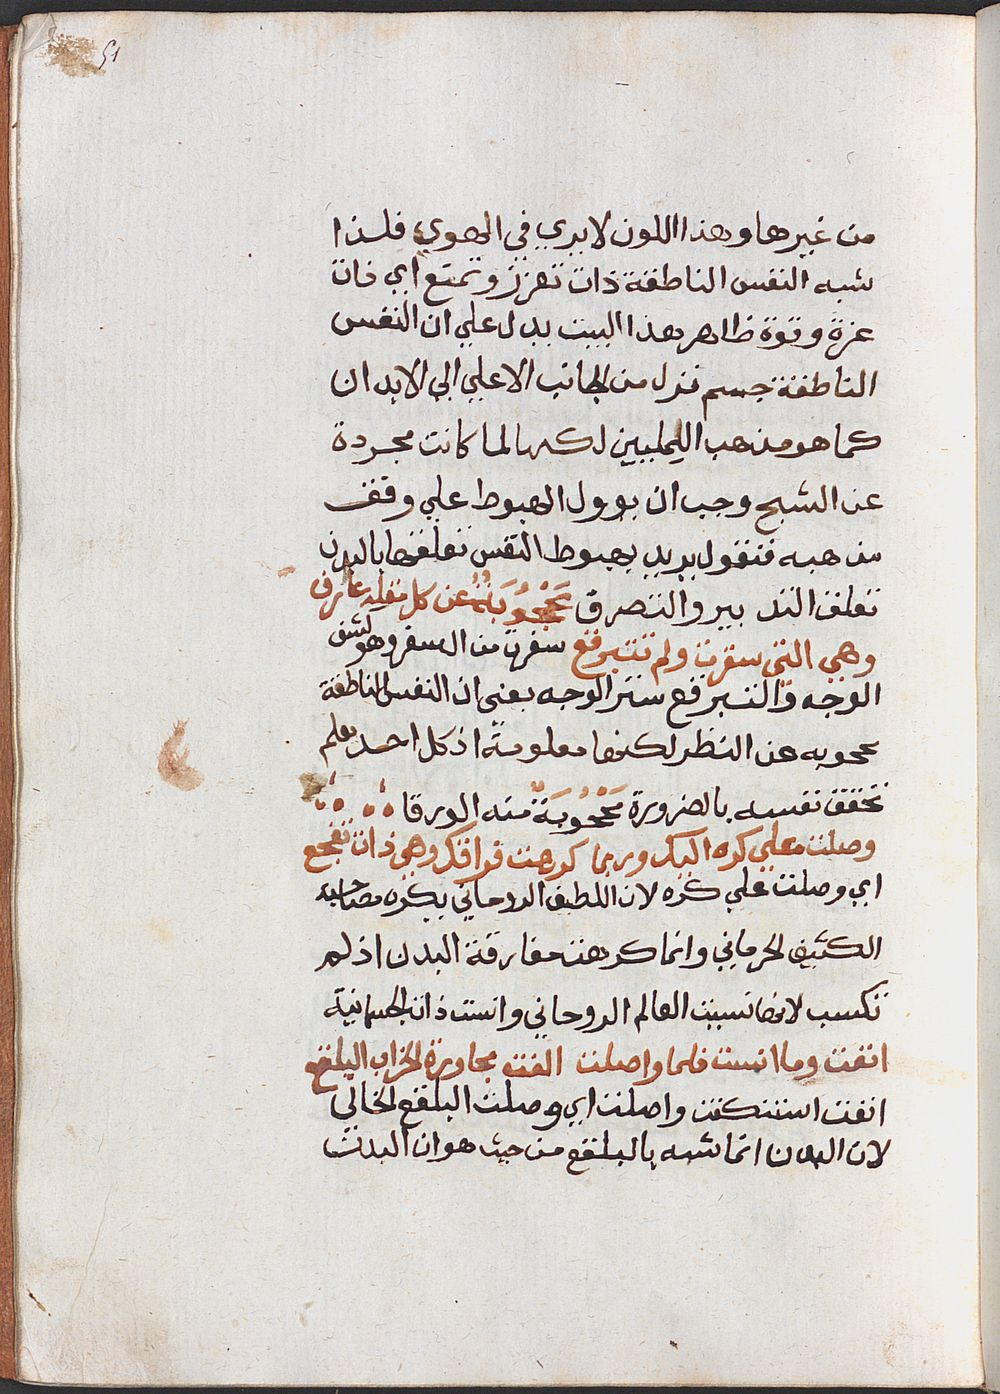 51
من غيرها وهذا اللون لا يري في الهوي فلذا
شبه النفس الناطقة ذات تعزز وتمتع اي ذات
عزة وقوة ظاهر هذا البيت يدل علي ان النفس
الناطقة جسم نزل من الجانب الاعلي الي الابدان
كما هو مذهب المليين لكنها لما كانت مجردة
عن الشيخ وجب ان يوول الهبوط علي وقف
مذهبه فنقول يريد بهبوط النفس تعلقها بالبدن
تعلق التدبير والتصرف محجوبة عن كل مقلة عارف
وهي التي سفرت ولم تتبرقع سفرت من السفر وهو كشف
الوجه والتبرقع ستر الوجه يعني ان النفس الناطقة
محجوبه عن النظر لكنها معلومة اذ كل احد يعلم
تحقق نفسه بالضرورة محجوبة منه الورقا
وصلت علي كره اليك وربما كرهت فراقك وهي ذات تفجع
اي وصلت علي كره لان اللطيف الروحاني يكره مصاحبة
الكثيف الجرماني وانما كرهت مفارقة البدن اذ لم
تكسب لانها نسيت العالم الروحاني وانست ذات الجسمانية
انفت وما انست فلما واصلت الفت مجاورة الخراب البلقع
انفت استنكفت واصلت اي وصلت البلقع الخالي
لان البدن انما شبه بالبلقع من حيث هو ان البدن